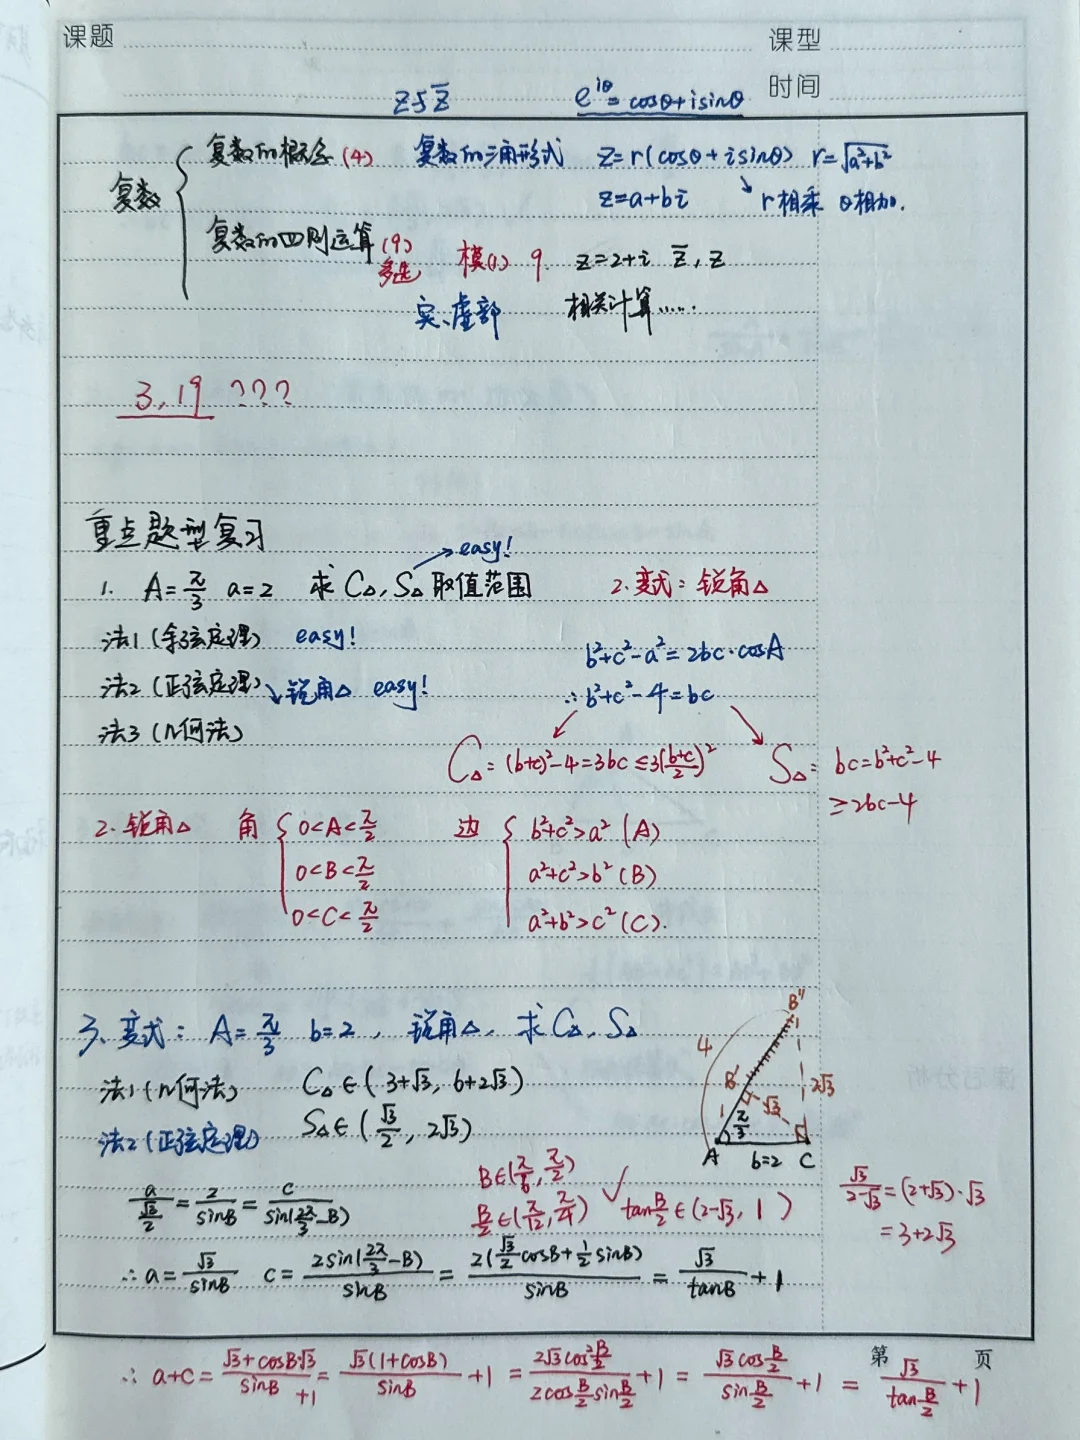 课题 课型
时间
z与z̅ e^{iθ}=cosθ+isinθ
复数的概念(4) 复数的三角形式 z=r(cosθ+isinθ) r=√(a²+b²)
复数 z=a+bi r相乘 θ相加.
复数的四则运算(9)多选 模(1) 9. z=2+i z̅,z
实、虚部 相关计算……
3,19 ???
重点题型复习
→easy!
1. A=π/3 a=2 求C△,S△取值范围 2.变式:锐角△
法1(余弦定理) easy! b²+c²-a²=2bc·cosA
法2(正弦定理)↘锐角△ easy! ∴b²+c²-4=bc
法3(几何法)
C△=(b+c)²-4=3bc≤3((b+c)/2)² S△=bc=b²+c²-4
≥2bc-4
2.锐角△ 角{0<A<π/2 边{b²+c²>a²(A)
0<B<π/2 a²+c²>b²(B)
0<C<π/2 a²+b²>c²(C).
3.变式:A=π/3 b=2,锐角△,求C△,S△
法1(几何法) C△∈(3+√3,6+2√3)
法2(正弦定理) S△∈(√3/2,2√3)
B″
4
B′ 2√3
1 √3
π/3
A b=2 C
a/(√3/2)=2/sinB=c/sin(2π/3-B)
B∈(π/6,π/2)
B/2∈(π/12,π/4) ✓ tanB/2∈(2-√3,1)
√3/(2-√3)=(2+√3)·√3
=3+2√3
∴a=√3/sinB c=2sin(2π/3-B)/sinB=2(√3/2cosB+1/2sinB)/sinB=√3/tanB+1
第 页
∴a+c=(√3+cosB√3)/sinB+1=√3(1+cosB)/sinB+1=2√3cos²B/2/(2cosB/2sinB/2)+1=√3cosB/2/sinB/2+1=√3/tanB/2+1